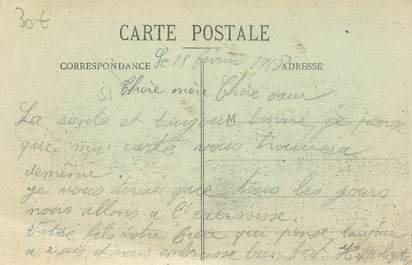 30t
CARTE POSTALE
CORRESPONDANCE Le 18 février 1915 ADRESSE
Chère mère Chère sœur
La santé et toujour bonne je pense
M
que ma carte vous trouvera
demême
je vous dirai que tous les jours
nous allons a l'
Votre fils votre frère qui pense toujour
a vous et vous embrasse bien